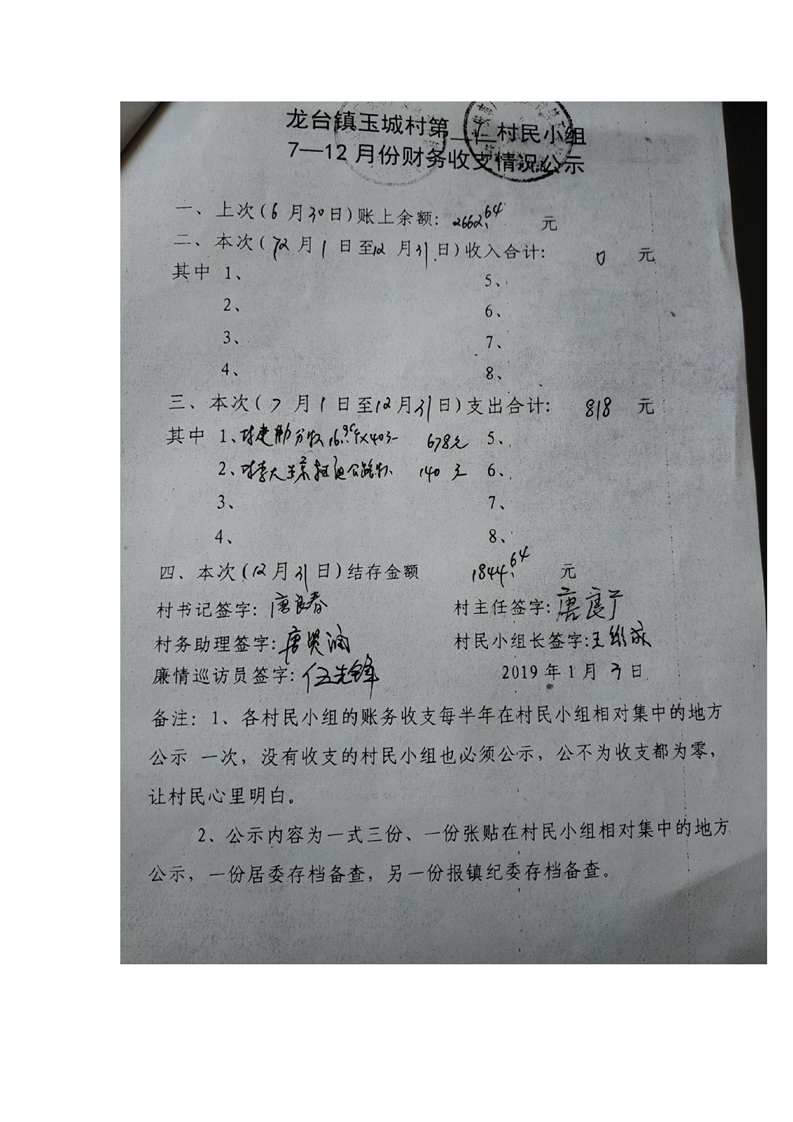 龙台镇玉城村第七村民小组
7—12月份财务收支情况公示
一、上次(6月30日)账上余额: 2662.64 元
二、本次(7月1日至12月31日)收入合计: 0 元
其中 1、 5、
2、 6、
3、 7、
4、 8、
三、本次(7月1日至12月31日)支出合计: 818 元
其中 1、 678元 5、
2、 140元 6、
3、 7、
4、 8、
四、本次(12月31日)结存金额 1844.64 元
村书记签字: 唐良春 村主任签字: 唐
村务助理签字: 唐 村民小组长签字: 王
廉情巡访员签字: 伍先锋 2019年1月3日
备注: 1、各村民小组的账务收支每半年在村民小组相对集中的地方
公示 一次，没有收支的村民小组也必须公示，公不为收支都为零，
让村民心里明白。
2、公示内容为一式三份、一份张贴在村民小组相对集中的地方
公示，一份居委存档备查，另一份报镇纪委存档备查。